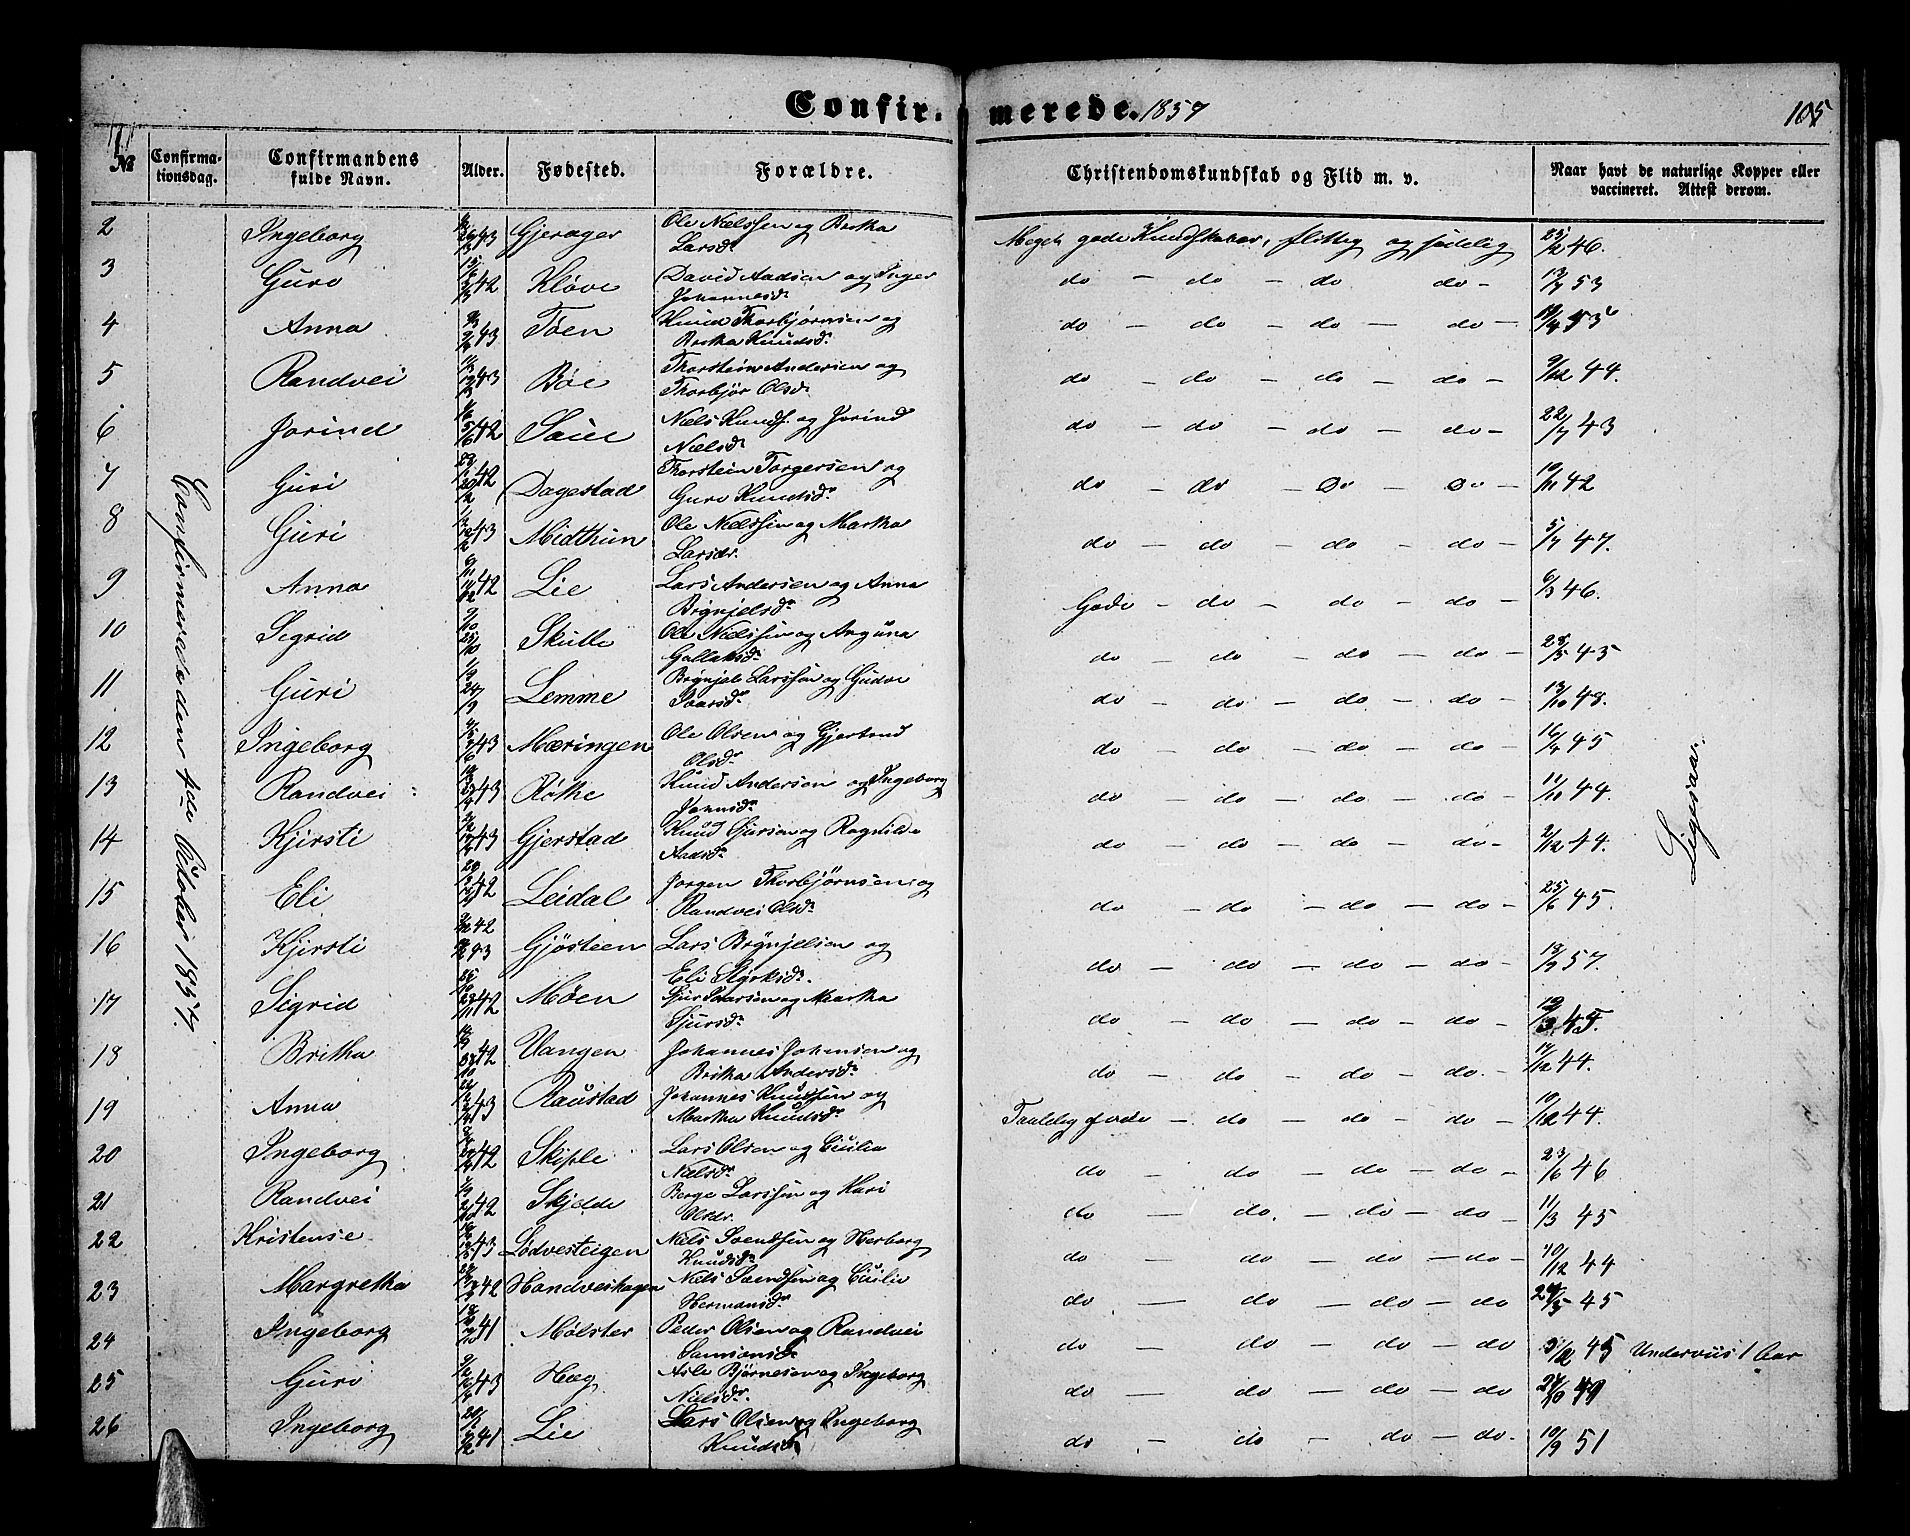 Confir- merede. 1857
105
№ Confirmationsdag. Confirmandens fulde Navn. Alder. Fødested. Forældre. Christendomskundskab og Flid m. v. Naar havt de naturlige Kopper eller vaccineret. Attest derom.
Confirmerede den 4de October 1857.
2 Ingeborg 43 Gjerager Ole Nælssen og Britha Larsdr Meget gode Kundskaber, flittig og sædelig 46.
3 Guro 42 Kløve David Aadsen og Inger Johannesdr do - do - do do - 53
4 Anna 43 Tøen Knud Thorbjørnsen og Britha Knudsdr do - do - do - do -
5 Randvei 43 Bøe Thorstein Andersen og Thorbjør Olsdr do - do - do - do - 9/12 44.
6 Jorind 42 Saue Næls Knuds. og Jorind Nælsdr do - do - do - do - 22/7 43
7 Guri 42 Dagestad Thorstein Torgersen og Guro Knudsdr do - do - do - do - 10/11 42
8 Guri 43 Midthun Ole Nælssen og Martha Larsdr. do - do - do - do - 5/7 47.
9 Anna 42 Lie Lars Andersen og Anna Brynjelsdr Gode - do - do - do - 6/3 46.
10 Sigrid Skutle Ole Nielssen og Anguna Gullaksdr do - do - do - do - 28/5 43
11 Guri Lemme Brynjel Larssen og Gudve Ivarsdr do - do - do - do - 13/10 48.
12 Ingeborg 43 Mæringen Ole Olsen og Gjertrud Olsdr do - do - do - do - 45
13 Randvei 43 Røthe Knud Andersen og Ingeborg Johnsdr do - do - do - do - 11/10 44.
14 Kjirsti 43 Gjerstad Knud Sjursen og Ragnilda Aadsdr do - do - do do - 2/12 44.
15 Eli 42 Leidal Jørgen Thorbjørnsen og Randvei Olsdr do - do - do - do - 25/6 45.
16 Kjirsti 42 43 Gjøsteen Lars Brynjelsen og Eli Styrksdr do - do - do - do - 57.
17 Sigrid 42 Møen Sjur Ivarsen og Martha Sjursdr do - do - do - do - 45.
18 Britha 42 Vangen Johannes Johnsen og Britha Andersdr do - do - do - do - 44.
19 Anna 43 Raustad Johannes Knudsen og Martha Knudsdr Taalelig gode - do - do - do - 10/12 44.
20 Ingeborg 42 Skiple Lars Olsen og Cicilia Nælsdr do - do - do - do - 23/6 46
21 Randvei 42 Skjelde Berge Larssen og Kari Olsdr. do - do. - do - do - 11/3 45
22 Kristense 43 Lødvesteigen Niels Svendsen og Herborg Knudsdr do - do - do - do - 10/12 44
23 Margretha 42 Handveshagen Niels Svendsen og Cicilie Hermansdr do - do - do - do - 45
24 Ingeborg 41 Mølster Peder Olsen og Randvei Samsonsdr do - do - do - do 45 Underviis 1 Aar
25 Guro 43 Hæg Asle Bjørnesen og Ingeborg Nielsdr do - do - do - do 49
26 Ingeborg 41 Lie Lars Olsen og Ingeborg Knudsdr do - do - do - do. - 10/9 51
Ligesaa.